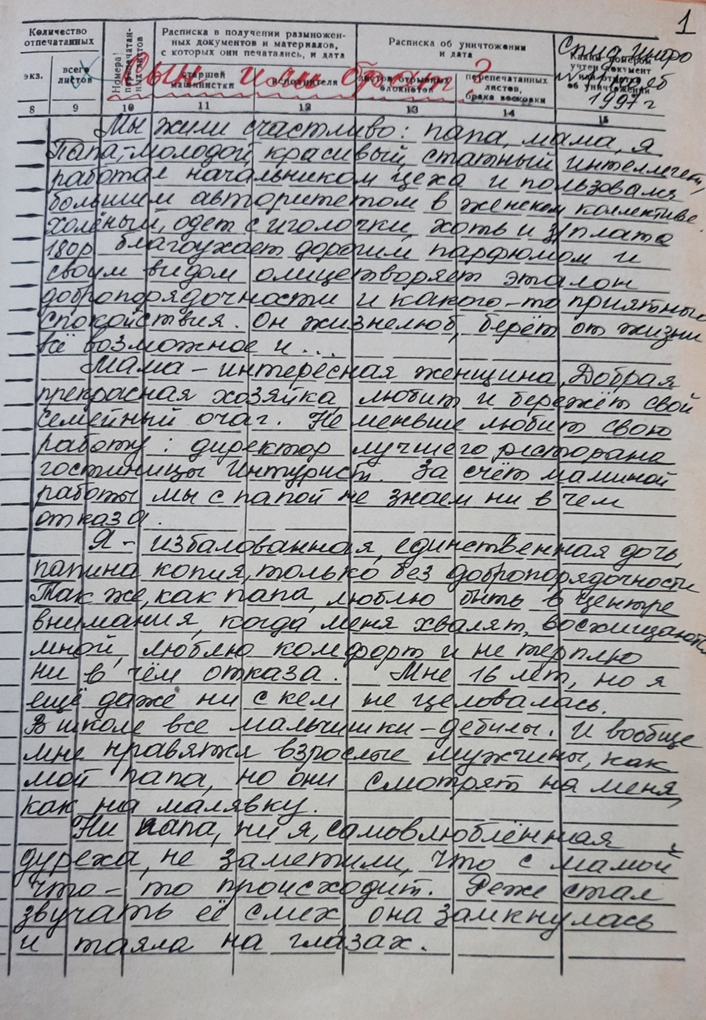 1
Количество
отпечатанных
Расписка в получении размножен-
ных документов и материалов,
с которых они печатались, и дата
Расписка об уничтожении
и дата
экз.
всего
листов
старшей
машинистки
перепечатанных
листов,
брака восковки
Сын или брат?
1997 г
8 9 10 11 12 13 14 15
Мы жили счастливо: папа, мама, я
Папа,-молодой красивый статный интеллегент,
работал начальником цеха и пользовался
большим авторитетом в женском коллективе.
Холёный, одет с иголочки, хоть и з/плата
180р благоухает дорогим парфюмом и
своим видом олицетворяет эталон
добропорядочности и какого-то приятного
спокойствия. Он жизнелюб, берёт от жизни
всё возможное и...
Мама - интересная женщина, Добрая
прекрасная хозяйка любит и бережёт свой
семейный очаг. Не меньше любит свою
работу: директор лучшего ресторана
гостиницы Интурист. За счёт маминой
работы мы с папой не знаем ни в чем
отказа.
Я - избалованная, единственная дочь,
папина копия, только без добропорядочности
Так же, как папа, люблю быть в центре
внимания, когда меня хвалят, восхищаются
мной, люблю комфорт и не терплю
ни в чём отказа. Мне 16 лет, но я
ещё даже ни с кем не целовалась.
В школе все мальчишки-дебилы. И вообще
мне нравятся взрослые мужчины, как
мой папа, но они смотрят на меня,
как на малявку.
Ни папа, ни я, самовлюблённая
дурёха, не заметили, что с мамой
что-то происходит. Реже стал
звучать её смех, она замкнулась
и таяла на глазах.